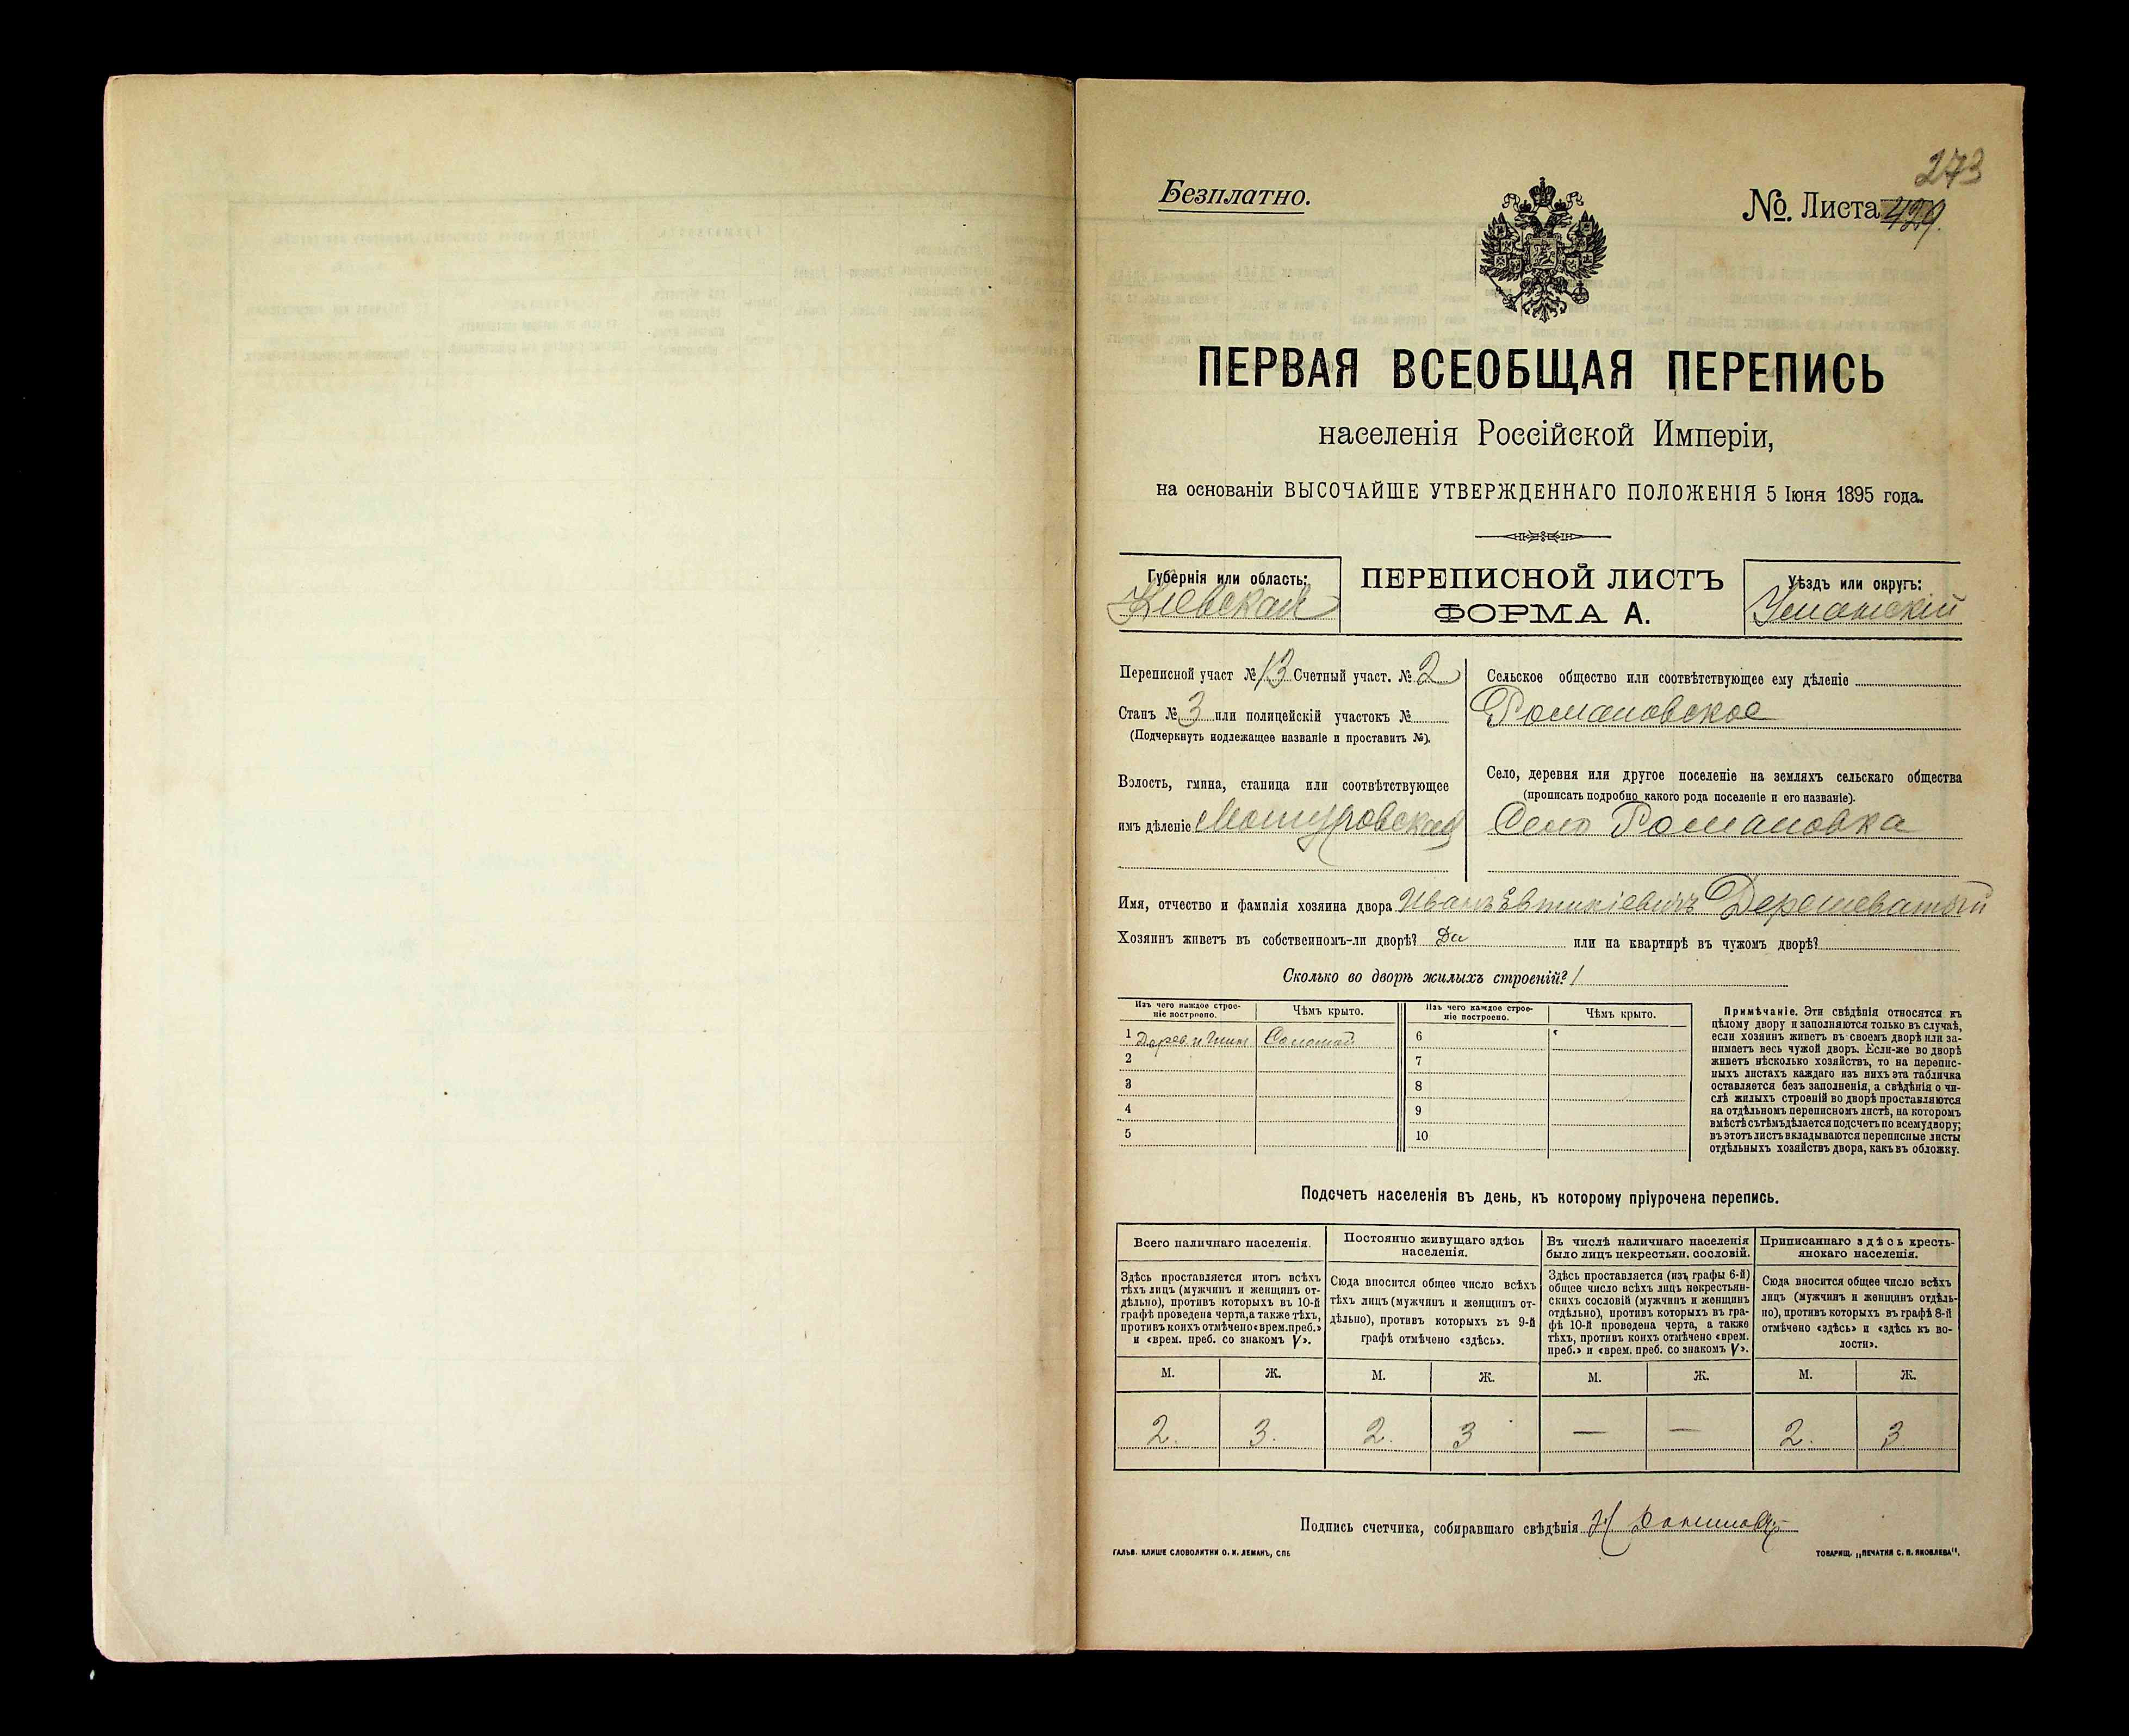 273
Безплатно.
№. Листа 429.
ПЕРВАЯ ВСЕОБЩАЯ ПЕРЕПИСЬ
населенія Россійской Имперіи,
на основаніи ВЫСОЧАЙШЕ УТВЕРЖДЕННАГО ПОЛОЖЕНІЯ 5 Іюня 1895 года.
Губернія или область:
Кіевская
ПЕРЕПИСНОЙ ЛИСТЪ
ФОРМА А.
Уѣздъ или округъ:
Уманскій
Переписной участ № 13 Счетный участ. № 2
Станъ № 3 или полицейскій участокъ №
(Подчеркнуть подлежащее названіе и проставить №).
Волость, гмина, станица или соотвѣтствующее
имъ дѣленіе Мошуровская
Сельское общество или соотвѣтствующее ему дѣленіе
Романовское
Село, деревня или другое поселеніе на земляхъ сельскаго общества
(прописать подробно какого рода поселеніе и его названіе).
Село Романовка
Имя, отчество и фамилія хозяина двора Иванъ Евтихіевичъ
Хозяинъ живетъ въ собственномъ-ли дворѣ? Да или на квартирѣ въ чужомъ дворѣ?
Сколько во дворѣ жилыхъ строеній? 1
Изъ чего каждое строе-
ніе построено.
Чѣмъ крыто.
Изъ чего каждое строе-
ніе построено.
Чѣмъ крыто.
1 Дерев. и Соломой
2
3
4
5
6
7
8
9
10
Примѣчаніе. Эти свѣдѣнія относятся къ
цѣлому двору и заполняются только въ случаѣ,
если хозяинъ живетъ въ своемъ дворѣ или за-
нимаетъ весь чужой дворъ. Если-же во дворѣ
живетъ нѣсколько хозяйствъ, то на перепис-
ныхъ листахъ каждаго изъ нихъ эта табличка
оставляется безъ заполненія, а свѣдѣнія о чи-
слѣ жилыхъ строеній во дворѣ проставляются
на отдѣльномъ переписномъ листѣ, на которомъ
вмѣстѣ съ тѣмъ дѣлается подсчетъ по всему двору;
въ этотъ листъ вкладываются переписные листы
отдѣльныхъ хозяйствъ двора, какъ въ обложку.
Подсчетъ населенія въ день, къ которому пріурочена перепись.
Всего наличнаго населенія.
Здѣсь проставляется итогъ всѣхъ
тѣхъ лицъ (мужчинъ и женщинъ от-
дѣльно), противъ которыхъ въ 10-й
графѣ проведена черта, а также тѣхъ,
противъ коихъ отмѣчено «врем. преб.»
и «врем. преб. со знакомъ V».
Постоянно живущаго здѣсь
населенія.
Сюда вносится общее число всѣхъ
тѣхъ лицъ (мужчинъ и женщинъ от-
дѣльно), противъ которыхъ въ 9-й
графѣ отмѣчено «здѣсь».
Въ числѣ наличнаго населенія
было лицъ некрестьян. сословій.
Здѣсь проставляется (изъ графы 6-й)
общее число всѣхъ лицъ некрестьян-
скихъ сословій (мужчинъ и женщинъ
отдѣльно), противъ которыхъ въ гра-
фѣ 10-й проведена черта, а также
тѣхъ, противъ коихъ отмѣчено «врем.
преб.» и «врем. преб. со знакомъ V».
Приписаннаго здѣсь кресть-
янскаго населенія.
Сюда вносится общее число всѣхъ
лицъ (мужчинъ и женщинъ отдѣль-
но), противъ которыхъ въ графѣ 8-й
отмѣчено «здѣсь» и «здѣсь къ во-
лости».
М. Ж. М. Ж. М. Ж. М. Ж.
2. 3. 2. 3 — — 2. 3.
Подпись счетчика, собиравшаго свѣдѣнія
ГАЛЬВ. КЛИШЕ СЛОВОЛИТНИ О. И. ЛЕМАНЪ, СПБ
ТОВАРИЩ. „ПЕЧАТНЯ С. П. ЯКОВЛЕВА".